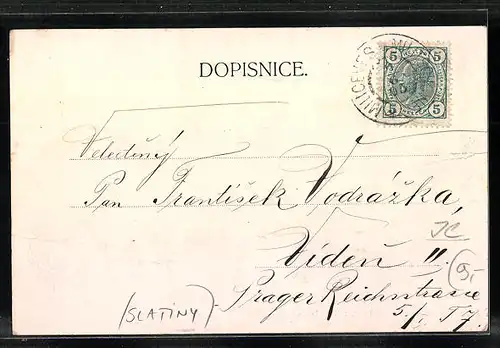 DOPISNICE.
5 5
5 5
MILIČEVES
Velectěný
Pan František Vodrážka,
Vídeň II.
Prager Reichstrasse
5/I T 7.
(SLATINY)
95,-